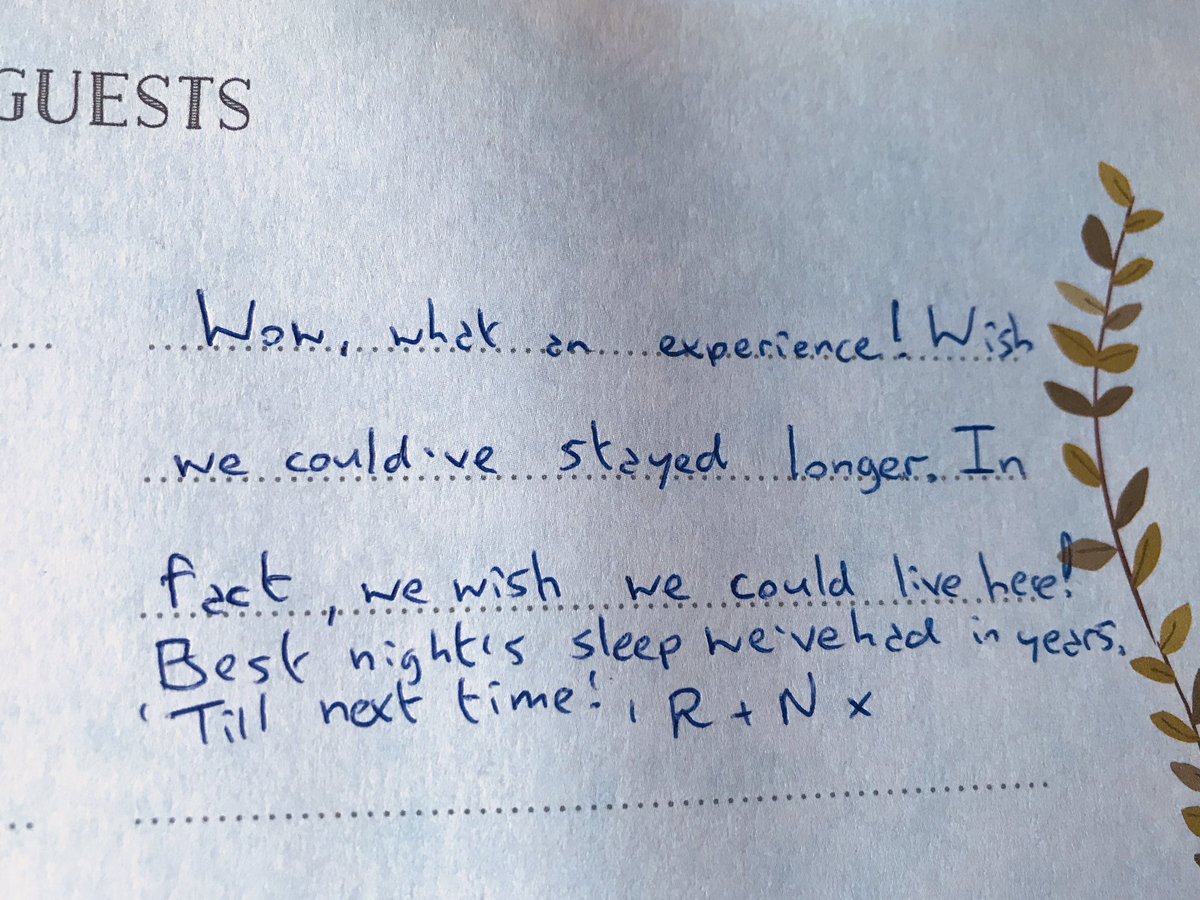 GUESTS
Wow, what an experience! Wish
we could've stayed longer. In
fact, we wish we could live here!
Best night's sleep we've had in years.
'Till next time!, R + N x